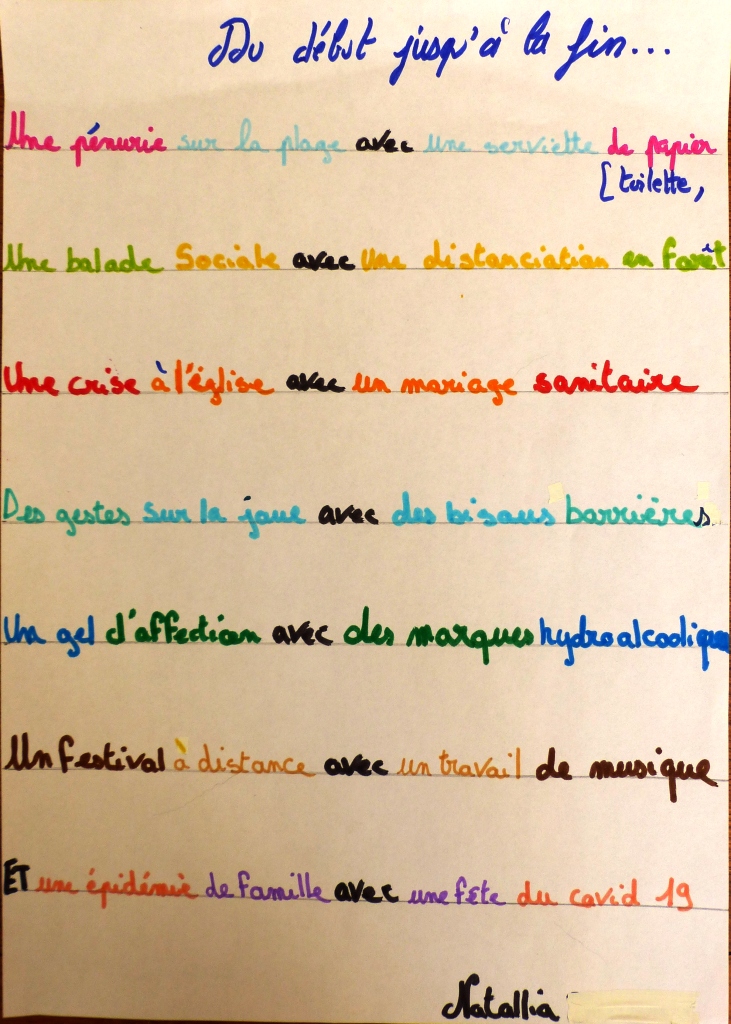 Du début jusqu'à la fin...
Une pénurie sur la plage avec une serviette de papier
[toilette,
Une balade Sociale avec une distanciation en forêt
Une crise à l'église avec un mariage sanitaire
Des gestes sur la joue avec des bisous barrières
Un gel d'affection avec des marques hydroalcoolique
Un festival à distance avec un travail de musique
ET une épidémie de famille avec une fête du covid 19
Natallia